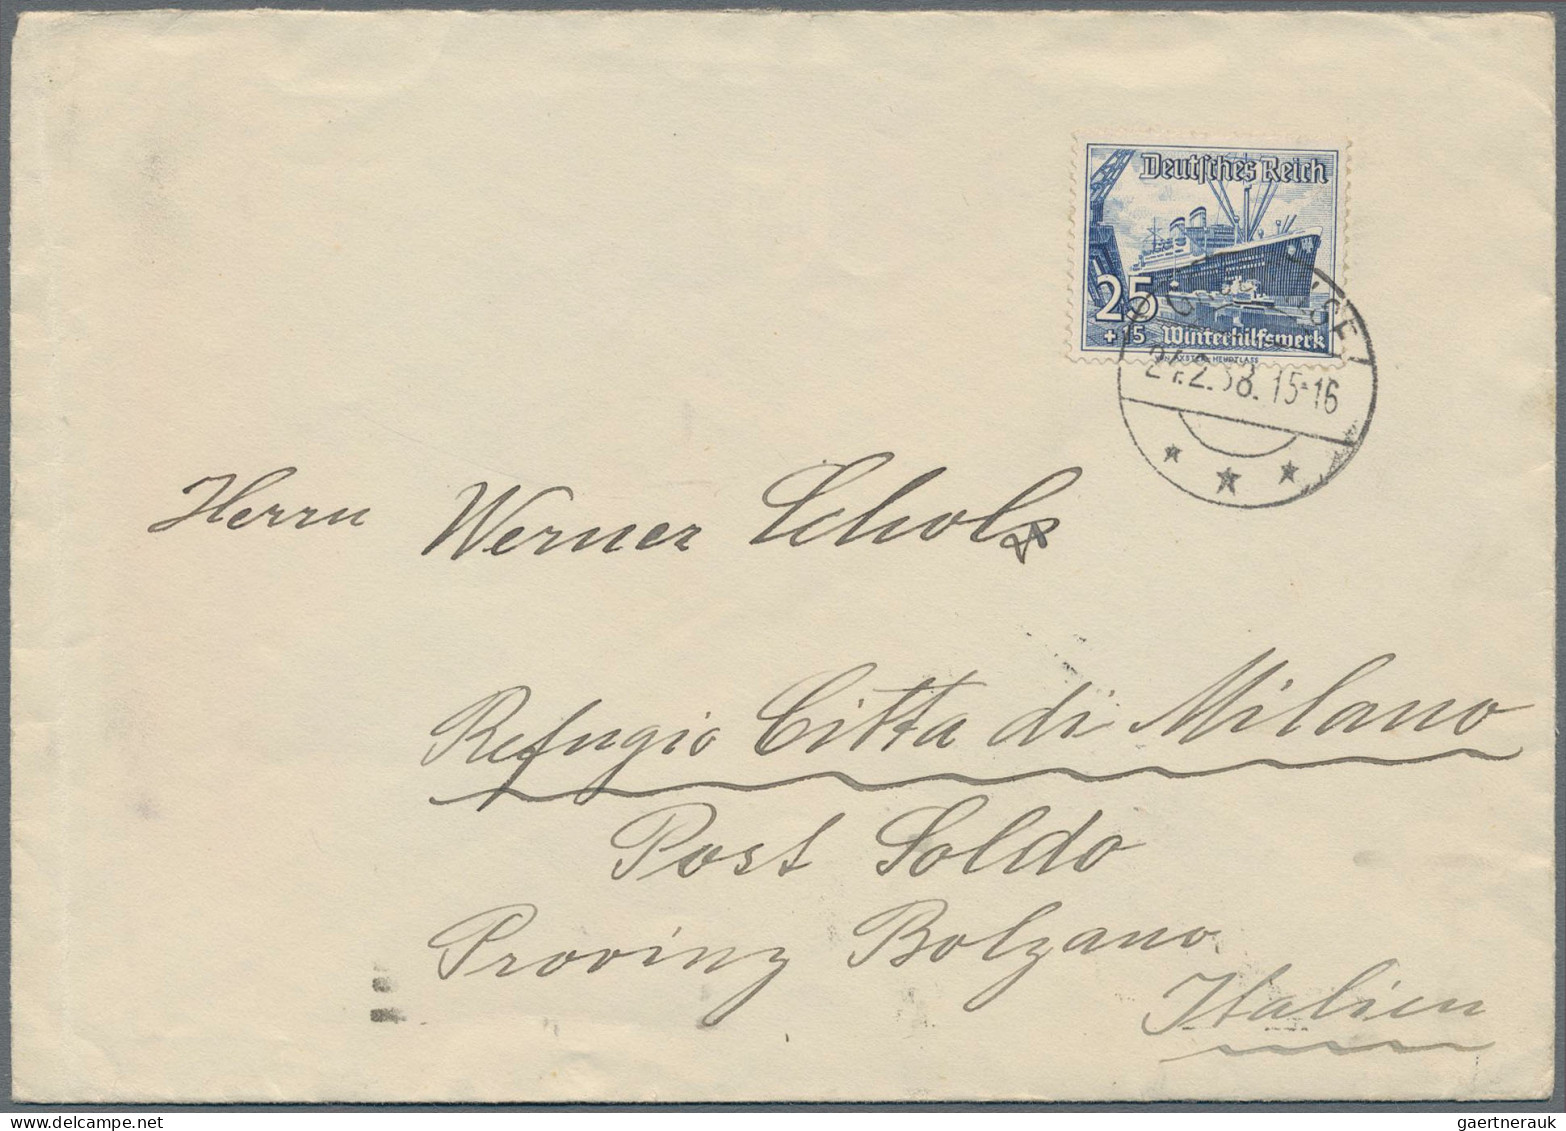 Deutsches Reich
25
+15 Winterhilfswerk
AXSTER-HEUDTLASS
2.38. 15-16
Herrn Werner Scholz
Refugio Citta di Milano
Post Soldo
Provinz Bolzano
Italien
gaertnerauk